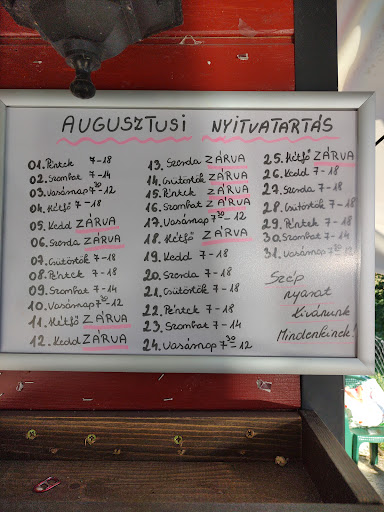 AUGUSZTUSI NYITVATARTÁS
01. Péntek 7-18
02. Szombat 7-14
03. Vasárnap 7³⁰-12
04. Hétfő 7-18
05. Kedd ZÁRVA
06. Szerda ZÁRVA
07. Csütörtök 7-18
08. Péntek 7-18
09. Szombat 7-14
10. Vasárnap 7³⁰-12
11. Hétfő ZÁRVA
12. Kedd ZÁRVA
13. Szerda ZÁRVA
14. Csütörtök ZÁRVA
15. Péntek ZÁRVA
16. Szombat ZÁRVA
17. Vasárnap 7³⁰-12
18. Hétfő ZÁRVA
19. Kedd 7-18
20. Szerda 7-18
21. Csütörtök 7-18
22. Péntek 7-18
23. Szombat 7-14
24. Vasárnap 7³⁰-12
25. Hétfő ZÁRVA
26. Kedd 7-18
27. Szerda 7-18
28. Csütörtök 7-18
29. Péntek 7-18
30. Szombat 7-14
31. Vasárnap 7³⁰-12
Szép
nyarat
Kívánunk
Mindenkinek!